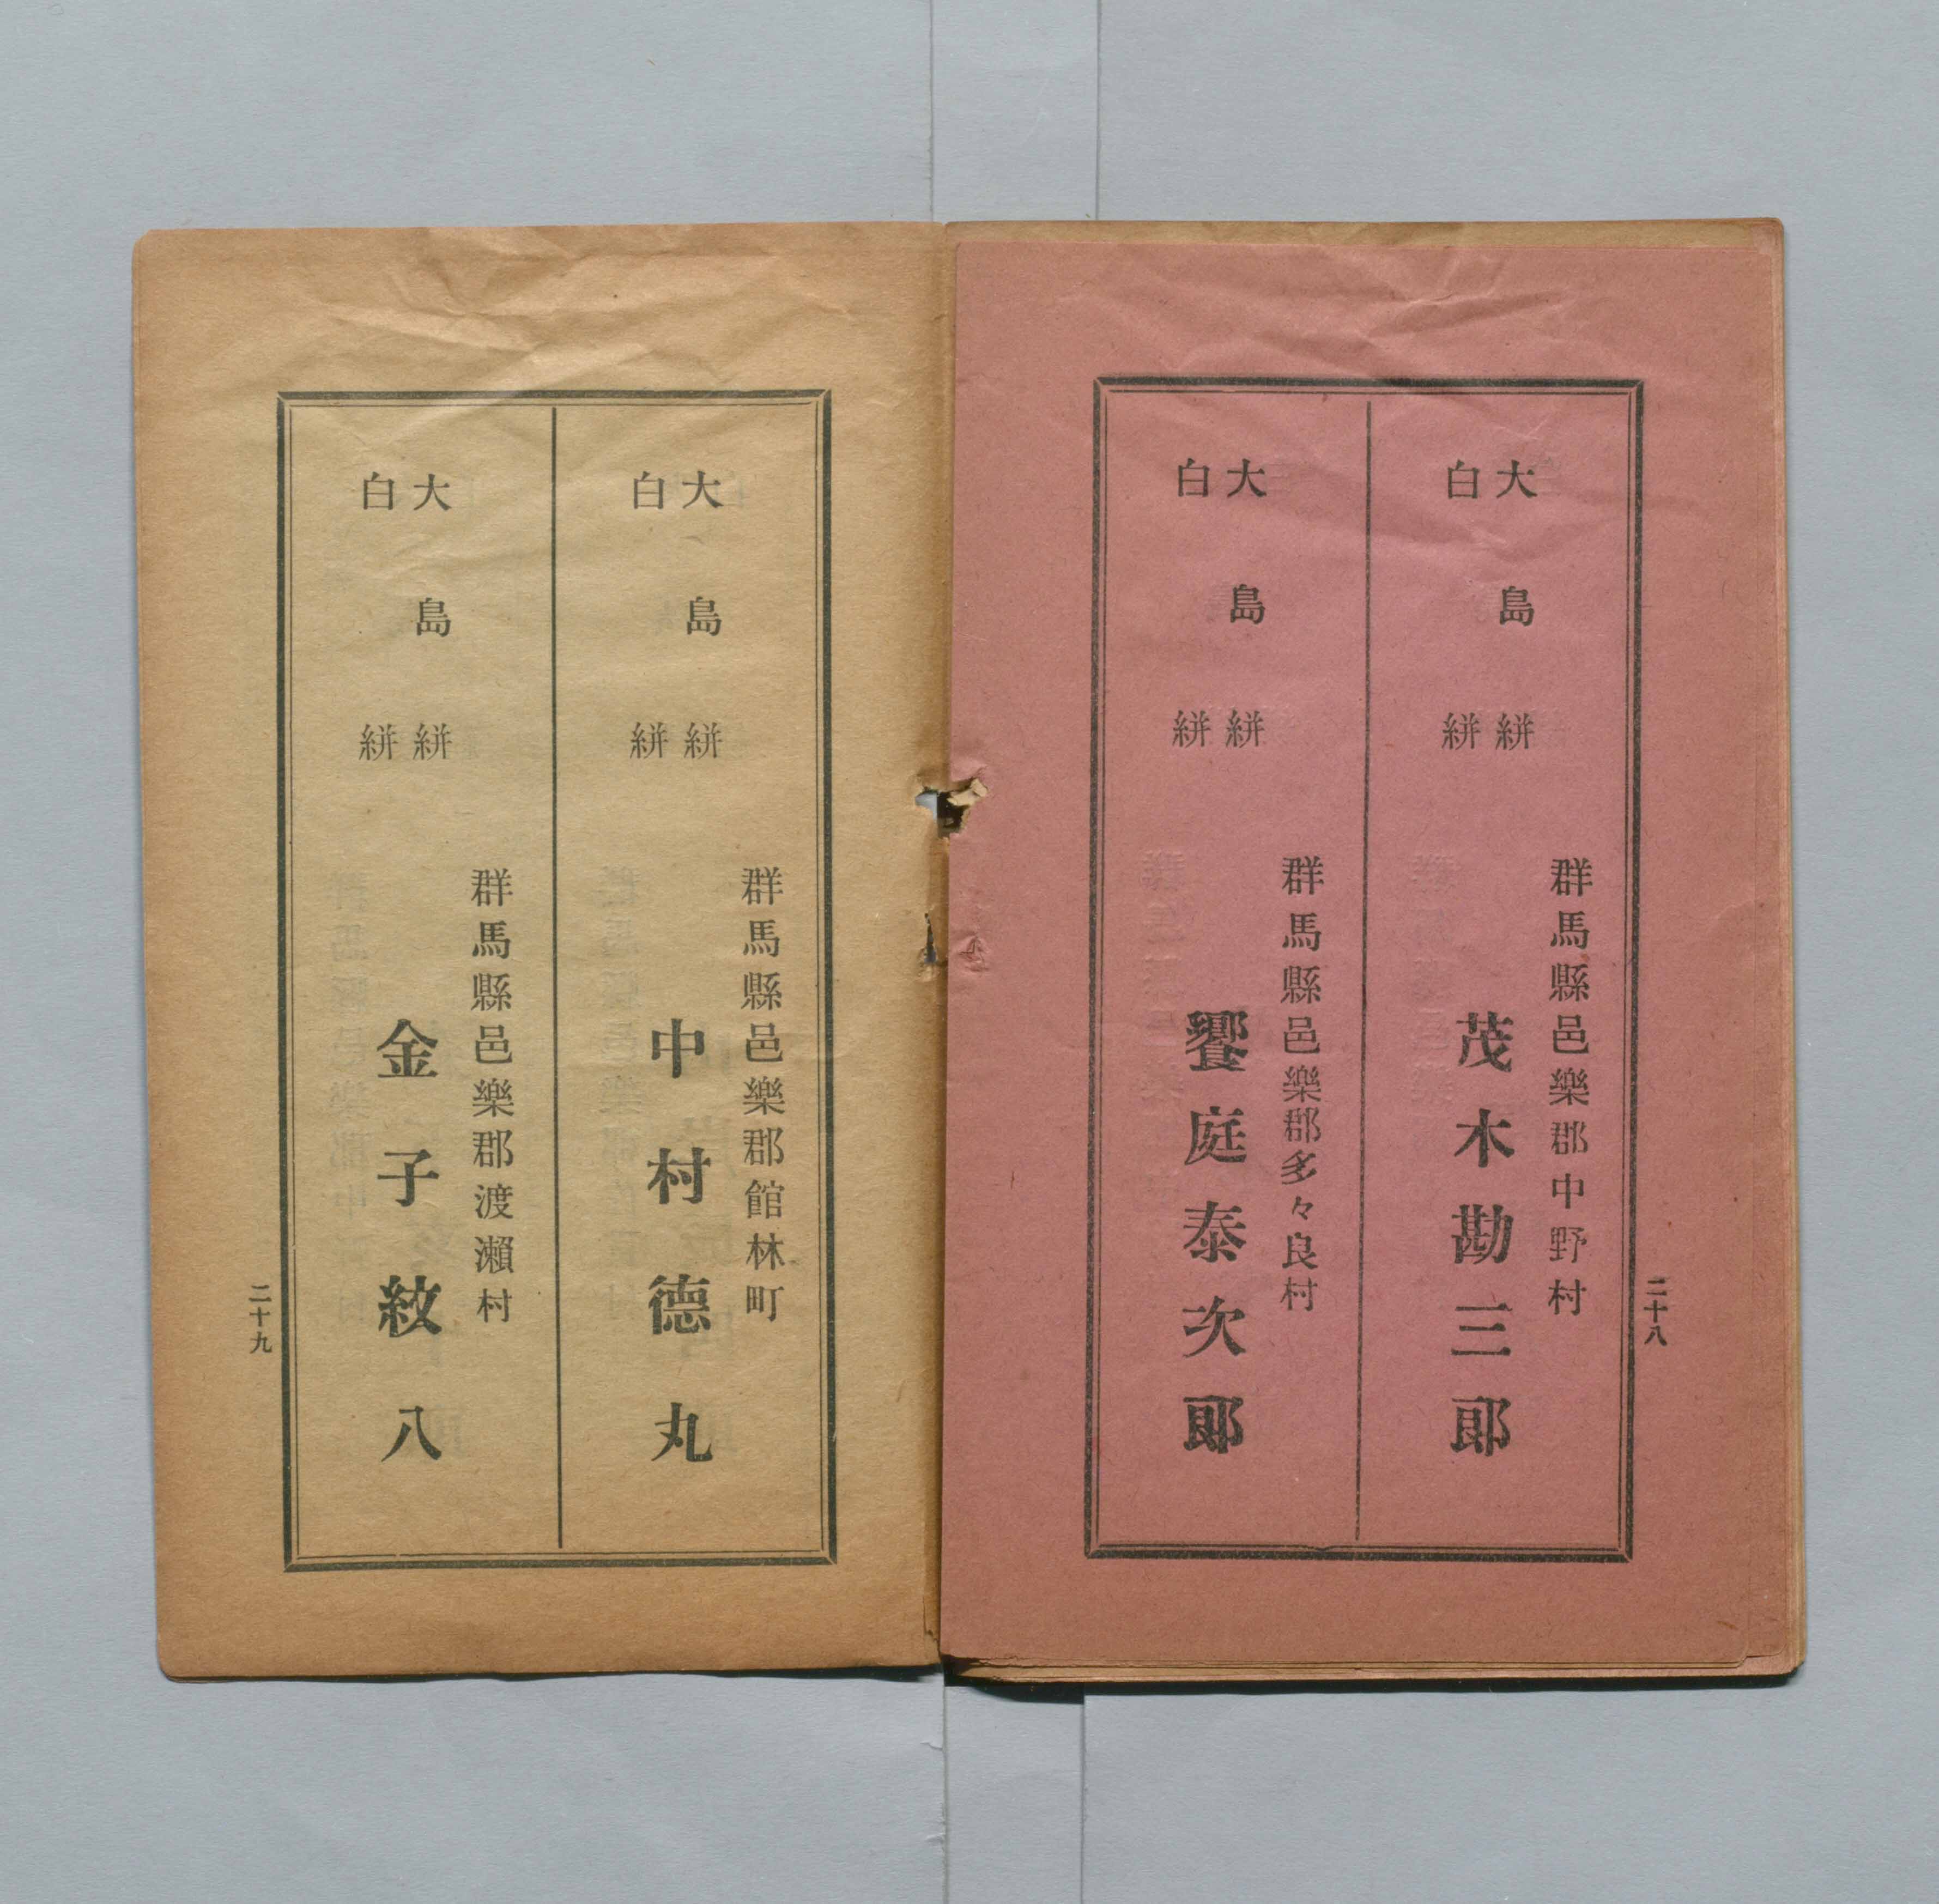 二十八
大島絣
白絣
群馬縣邑樂郡中野村
茂木勘三郎
大島絣
白絣
群馬縣邑樂郡多々良村
饗庭泰次郎
大島絣
白絣
群馬縣邑樂郡館林町
中村德丸
大島絣
白絣
群馬縣邑樂郡渡瀨村
金子紋八
二十九